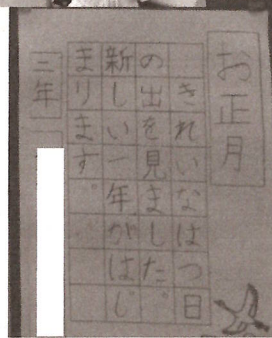 お正月
きれいなはつ日
の出を見ました。
新しい一年がはじ
まります。
三年